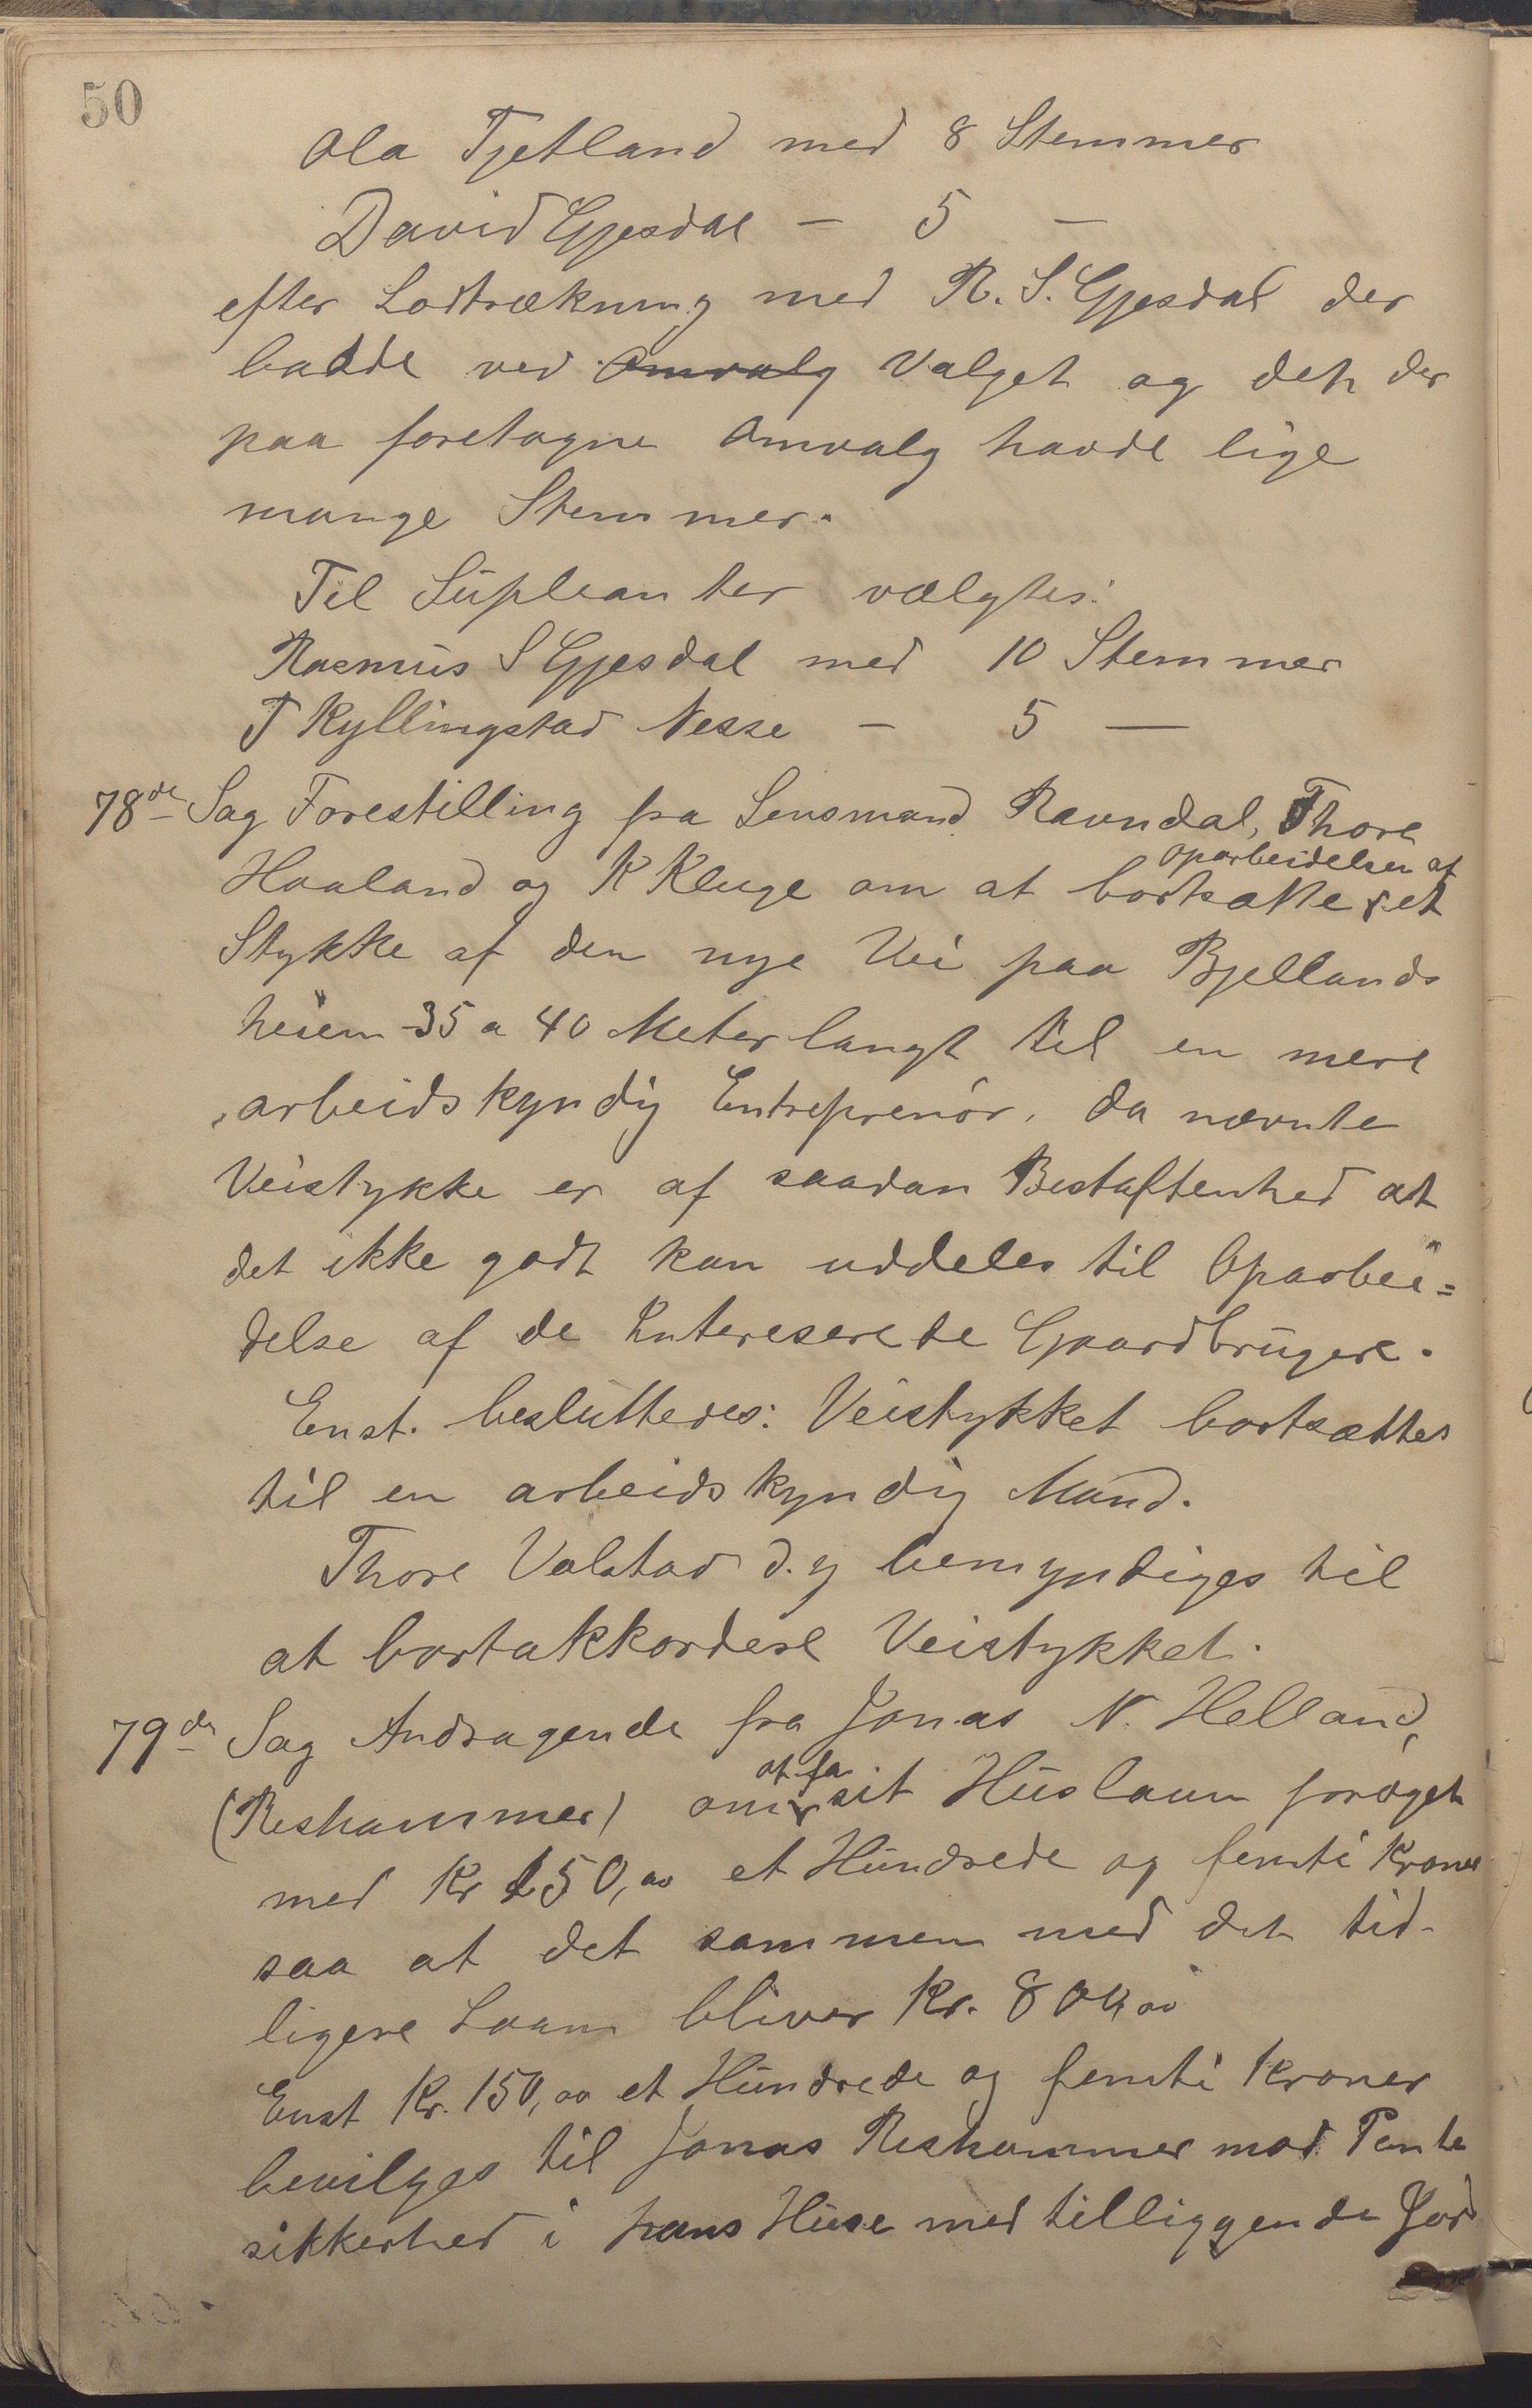 50
Ola Tjetland med 8 Stemmer
David Gjesdal - 5 -
efter Lodtrækning med R. S. Gjesdal der
badde ved Omvalg Valget og det der
paa foretagne Omvalg havde lige
mange Stemmer.
Til Supleanter vælgtes:
Rasmus S Gjesdal med 10 Stemmer
T Kyllingstad Nesse - 5 -
78de Sag Forestilling fra Lensmand Ravndal, Thore
Oparbeidelsen af
Haaland og K Kluge om at bortsætte et
Stykke af den nye Vei paa Bjellands
heien 35 a 40 Meter langt til en mere
arbeidskyndig Entreprenør, da nævnte
Veistykke er af saadan Bestaftenhed at
det ikke godt kan uddeles til Oparbei=
delse af de Intereserede Gaardbrugere.
Enst. besluttedes: Veistykket bortsættes
til en arbeidskyndig Mand.
Thore Valstad d.y bemyndiges til
at bortakkordere Veistykket.
79de Sag Andragende fra Jonas N. Helland,
at fa
(Reshammer) om sit Huslaan forøget
med Kr 150,00 et Hundrede og femti Kroner
saa at det sammen med det tid-
ligere Laan bliver Kr. 800,00
Enst Kr. 150,00 et Hundrede og femti Kroner
bevilges til Jonas Reshammer mod Pante
sikkerhed i hans Huse med tilliggende Jord